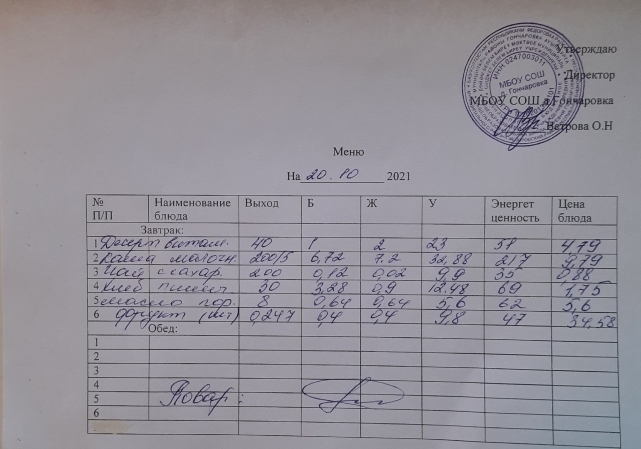 Утверждаю
Директор
МБОУ СОШ д.Гончаровка
Ветрова О.Н
ИНН 0247003011
МБОУ СОШ
д. Гончаровка
Меню
На 20.10 2021
№ П/П Наименование блюда Выход Б Ж У Энергет ценность Цена блюда
Завтрак:
1 Десерт витам. 40 1 2 23 4,79
2 Каша молочн. 200/5 6,72 7.2 32,88 217 9,79
3 Чай с сахар. 200 0,12 0,02 9,9 35 0,88
4 Хлеб пшенич. 30 3,28 0,9 12.48 69 1,75
5 масло гор. 8 0,64 0,64 5,6 62 5,6
6 фрукт (шт) 0,247 0,4 0,4 9,8 47 34,58
Обед:
1
2
3
4
5
6
Повар: